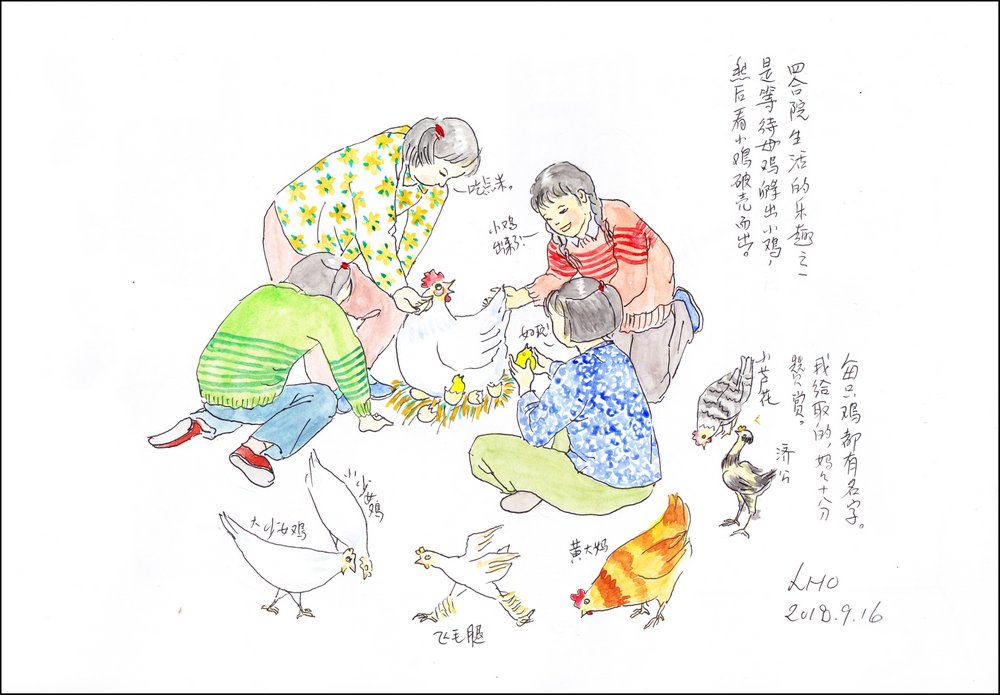 四合院生活的乐趣之一
是等待母鸡孵出小鸡，
然后看小鸡破壳而出。
吃点米。
小鸡
出来了！
好玩！
每只鸡都有名字。
我给取的，妈々十分
赞赏。
小芦花
济公
小少女鸡
大少女鸡
飞毛腿
黄大妈
LHO
2018.9.16